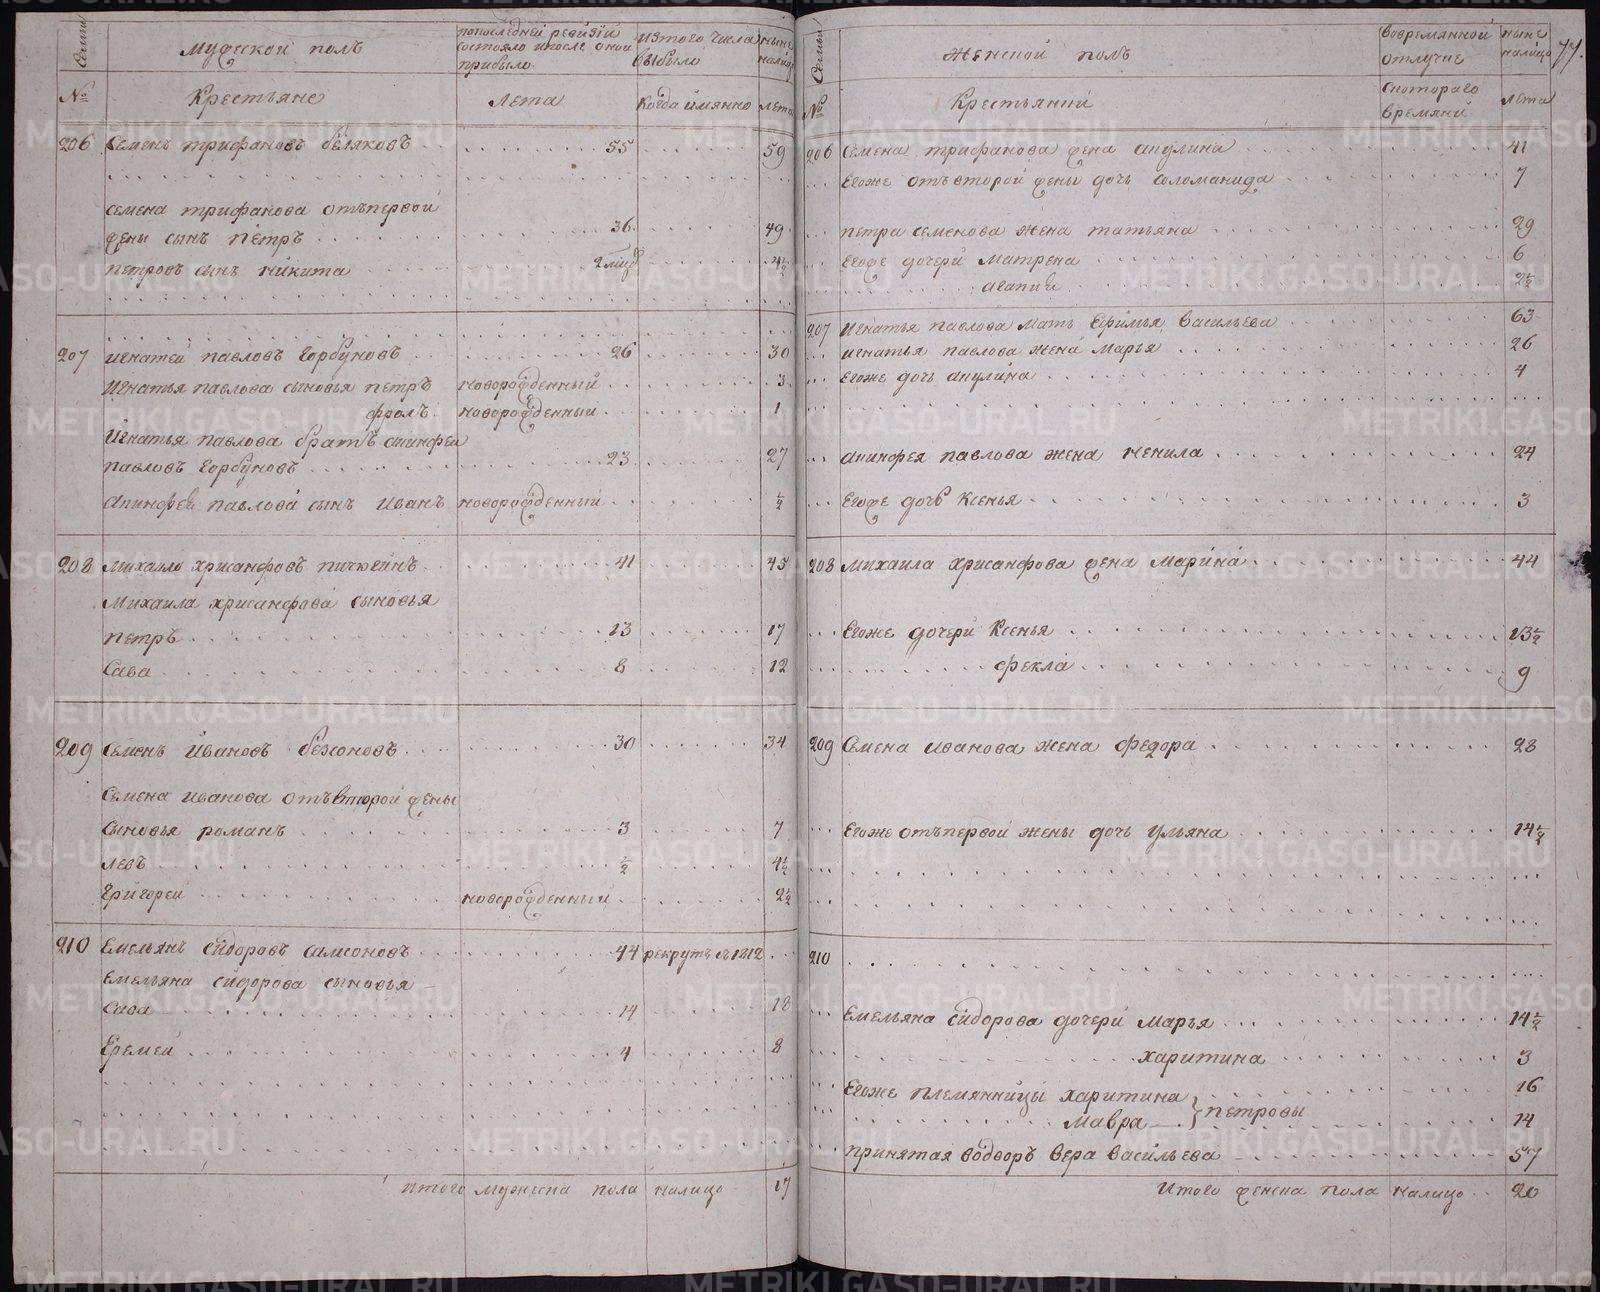 Семьи
Мужской полъ
попоследней ревизïи
состояло ипосле оной
прибыло.
изтого числа
выбыло
ныне
налицо
№
Крестьяне
Лета
Когда имянно
лета
206 Семенъ трифановъ беляковъ 55 59
семена трифанова отъпервой
жены сынъ петръ 36 49
петровъ сынъ никита 4½
207 игнатей павловъ горбуновъ 26 30
Игнатья павлова сыновья петръ новорожденный 3
фролъ новорожденный 1
Игнатья павлова братъ апинфеи
павловъ горбуновъ 23 27
апинфея павлова сынъ иванъ новорожденный ½
208 михаило хрисанфовъ 41 45
Михаила хрисанфова сыновья
петръ 13 17
Сава 8 12
209 Семенъ ивановъ 30 34
Семена иванова отъвторой жены
Сыновья романъ 3 7
левъ ½ 4½
Григорей новорожденный 2½
210 Емельянъ сидоровъ самсоновъ 44 рекрутъ в 1812
Емельяна сидорова сыновья
Сава 14 18
Еремей 4 8
Итого мужеска пола налицо 17
77.
Семьи
Женской полъ
вовремянной
отлучке
ныне
налицо
№
Крестьянки
скотораго
времяни
лета
206 Семена трифанова жена акулина 41
Егоже отъвторой жены дочь соломанида 7
петра семенова жена татьяна 29
Егоже дочери матрена 6
агапия 2½
207 игнатья павлова мать Ефимья васильева 63
игнатья павлова жена марья 26
Егоже дочь акулина 4
апинфея павлова жена ненила 24
Егоже дочь Ксенья 3
208 михаила хрисанфова жена марина 44
Егоже дочери Ксенья 13½
фекла 9
209 Семена иванова жена федора 28
Егоже отъпервой жены дочь ульяна 14½
210
Емельяна сидорова дочери марья 14½
харитина 3
Егоже племянницы харитина 16
мавра } петровы 14
принятая водворъ вера васильева 57
Итого женска пола налицо 20
METRIKI.GASO-URAL.RU